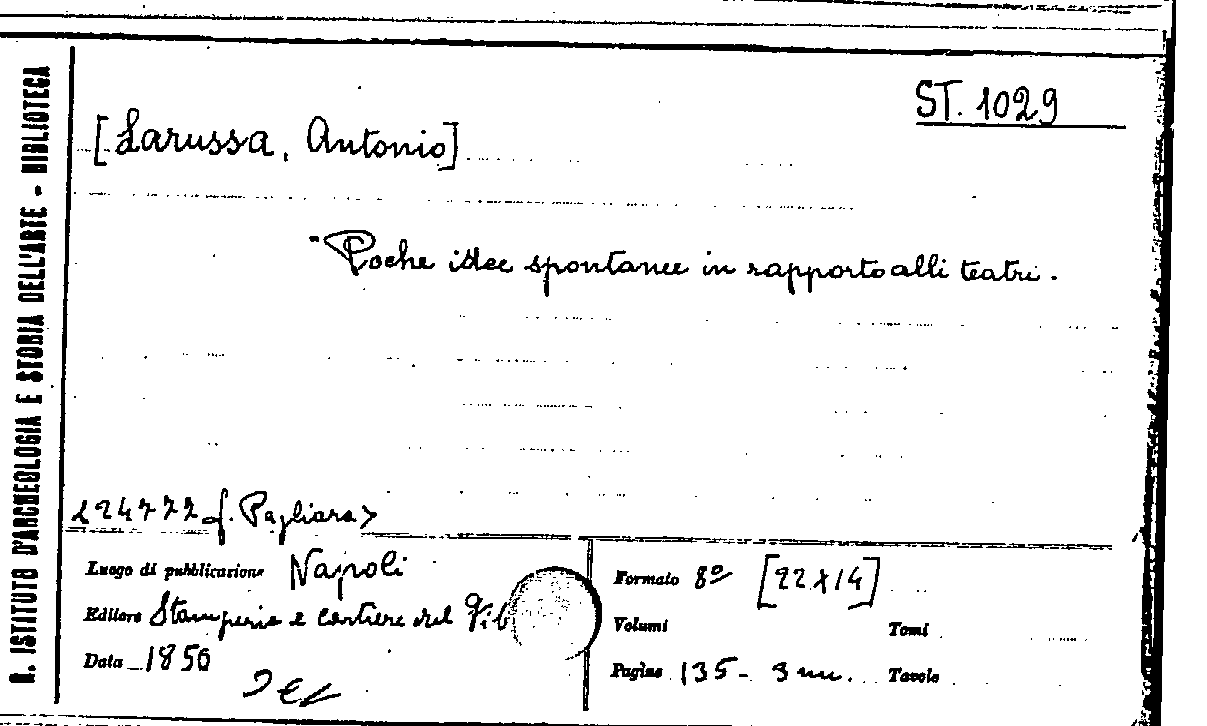 R. ISTITUTO D'ARCHEOLOGIA E STORIA DELL'ARTE - BIBLIOTECA
ST. 1029
[Larussa, Antonio]
"Poche idee spontanee in rapporto alli teatri.
224772 f. Pagliara>
Luogo di pubblicazione Napoli
Editore Stamperia e Cartiere del Fib
Data 1850
Formato 8º [22 x 14]
Volumi Tomi
Pagine 135 - 3 nn. Tavole